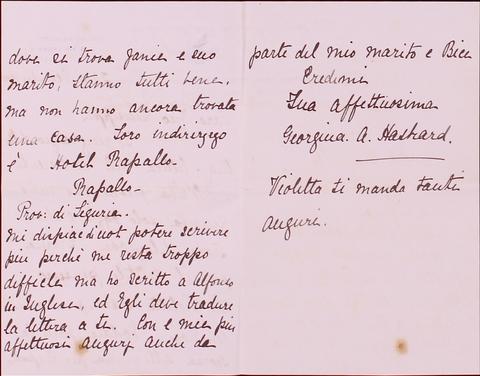 dove si trova Janie e suo
marito, stanno tutti bene,
ma non hanno ancora trovata
una casa. Loro indirizzo
è Hotel Rapallo
Rapallo
Prov: di Liguria.
mi dispiace di not potere scrivere
piu perchè me resta troppo
difficile ma ho scritto a Alfonso
in Inglese, ed Egli deve tradure
la lettera a te. Con e miei piu
affettuosi auguri anche da
parte del mio marito e Bice
Credimi
Tua affettuosima
Georgina. A. Haskard.
Violetta ti manda tanti
auguri.